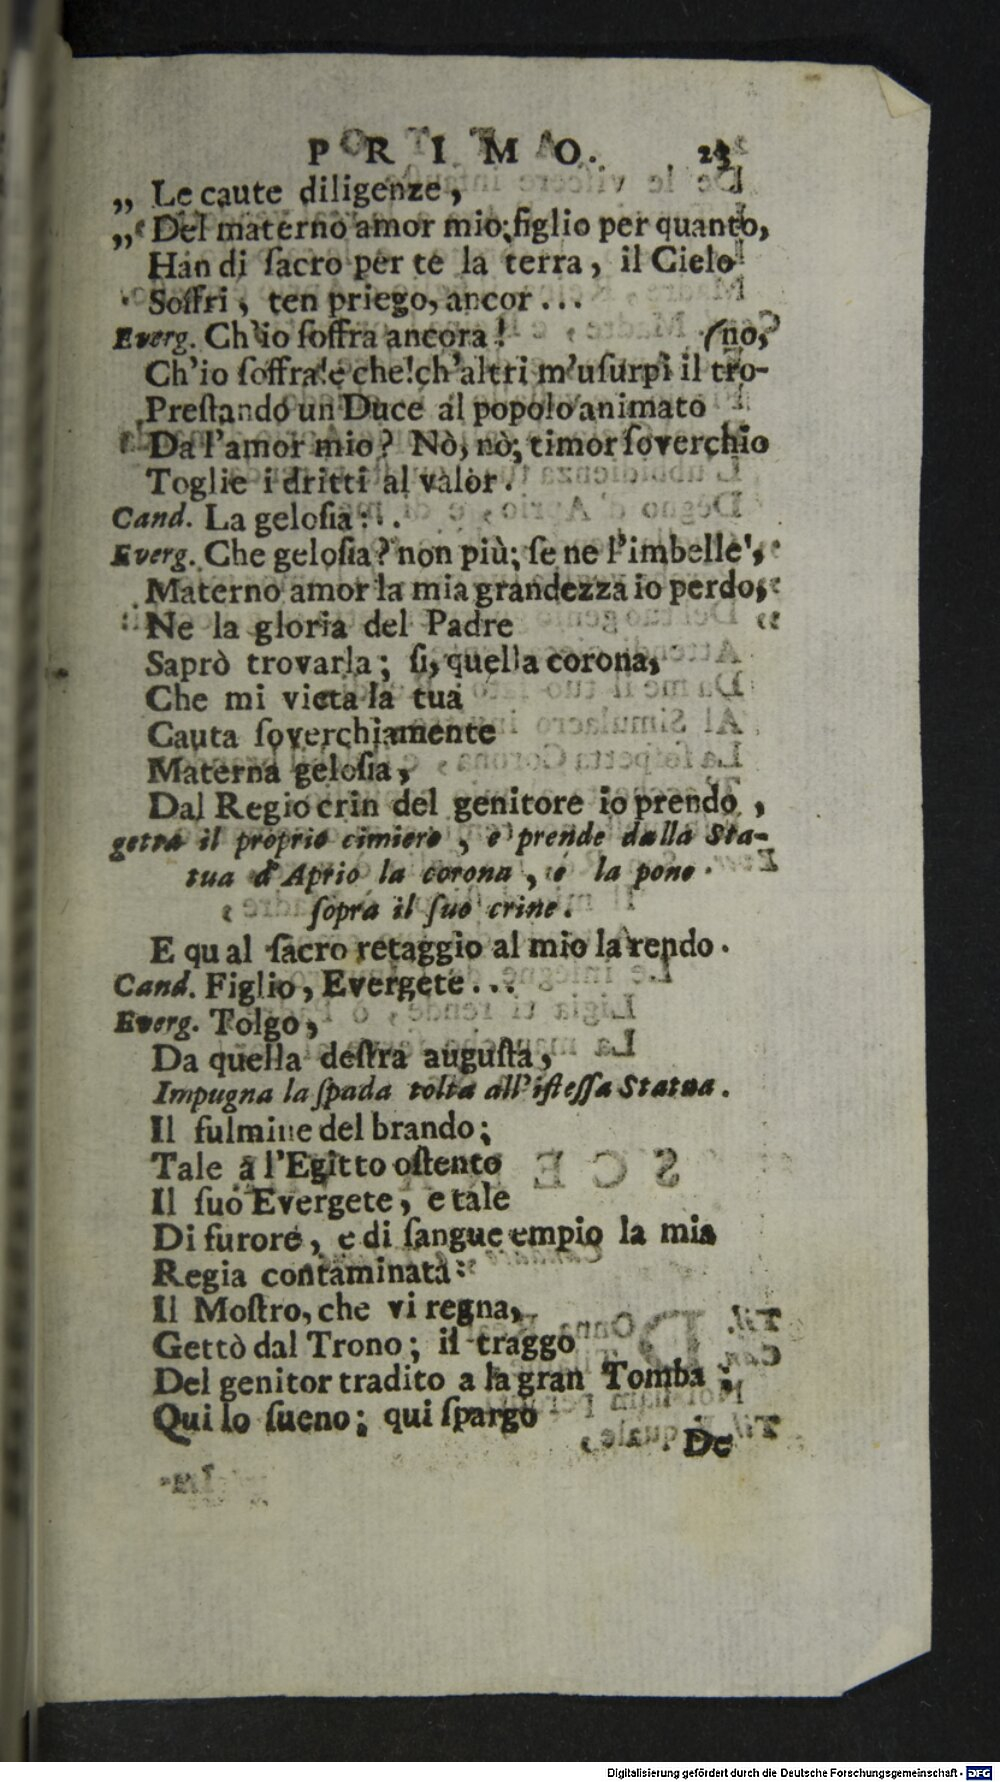 PRIMO. 23
„ Le caute diligenze,
„ Del materno amor mio; figlio per quanto,
Han di ſacro per te la terra, il Cielo
Soffri, ten priego, ancor...
Everg. Ch'io ſoffra ancora! (no,?
Ch'io ſoffra! e che! ch'altri m'uſurpi il tro-
Preſtando un Duce al popolo animato
Da l'amor mio? Nò, nò; timor ſoverchio
Toglie i dritti al valor.
Cand. La geloſia...
Everg. Che geloſia? non più; ſe ne l'imbelle,
Materno amor la mia grandezza io perdo,
Ne la gloria del Padre
Saprò trovarla; ſi, quella corona,
Che mi vieta la tua
Cauta ſoverchiamente
Materna geloſia,
Dal Regio crin del genitore io prendo,
getta il proprio cimiero, e prende dalla Sta-
tua d'Aprio la corona, e la pone
ſopra il ſuo crine.
E qual ſacro retaggio al mio la rendo.
Cand. Figlio, Evergete...
Everg. Tolgo,
Da quella deſtra auguſta,
Impugna la ſpada tolta all'iſteſſa Statua.
Il fulmine del brando;
Tale a l'Egitto oſtento
Il ſuo Evergete, e tale
Di furore, e di ſangue empio la mia
Regia contaminata:
Il Moſtro, che vi regna,
Gettò dal Trono; il traggo
Del genitor tradito a la gran Tomba;
Qui lo ſueno; qui ſpargo
De
Digitalisierung gefördert durch die Deutsche Forschungsgemeinschaft - DFG